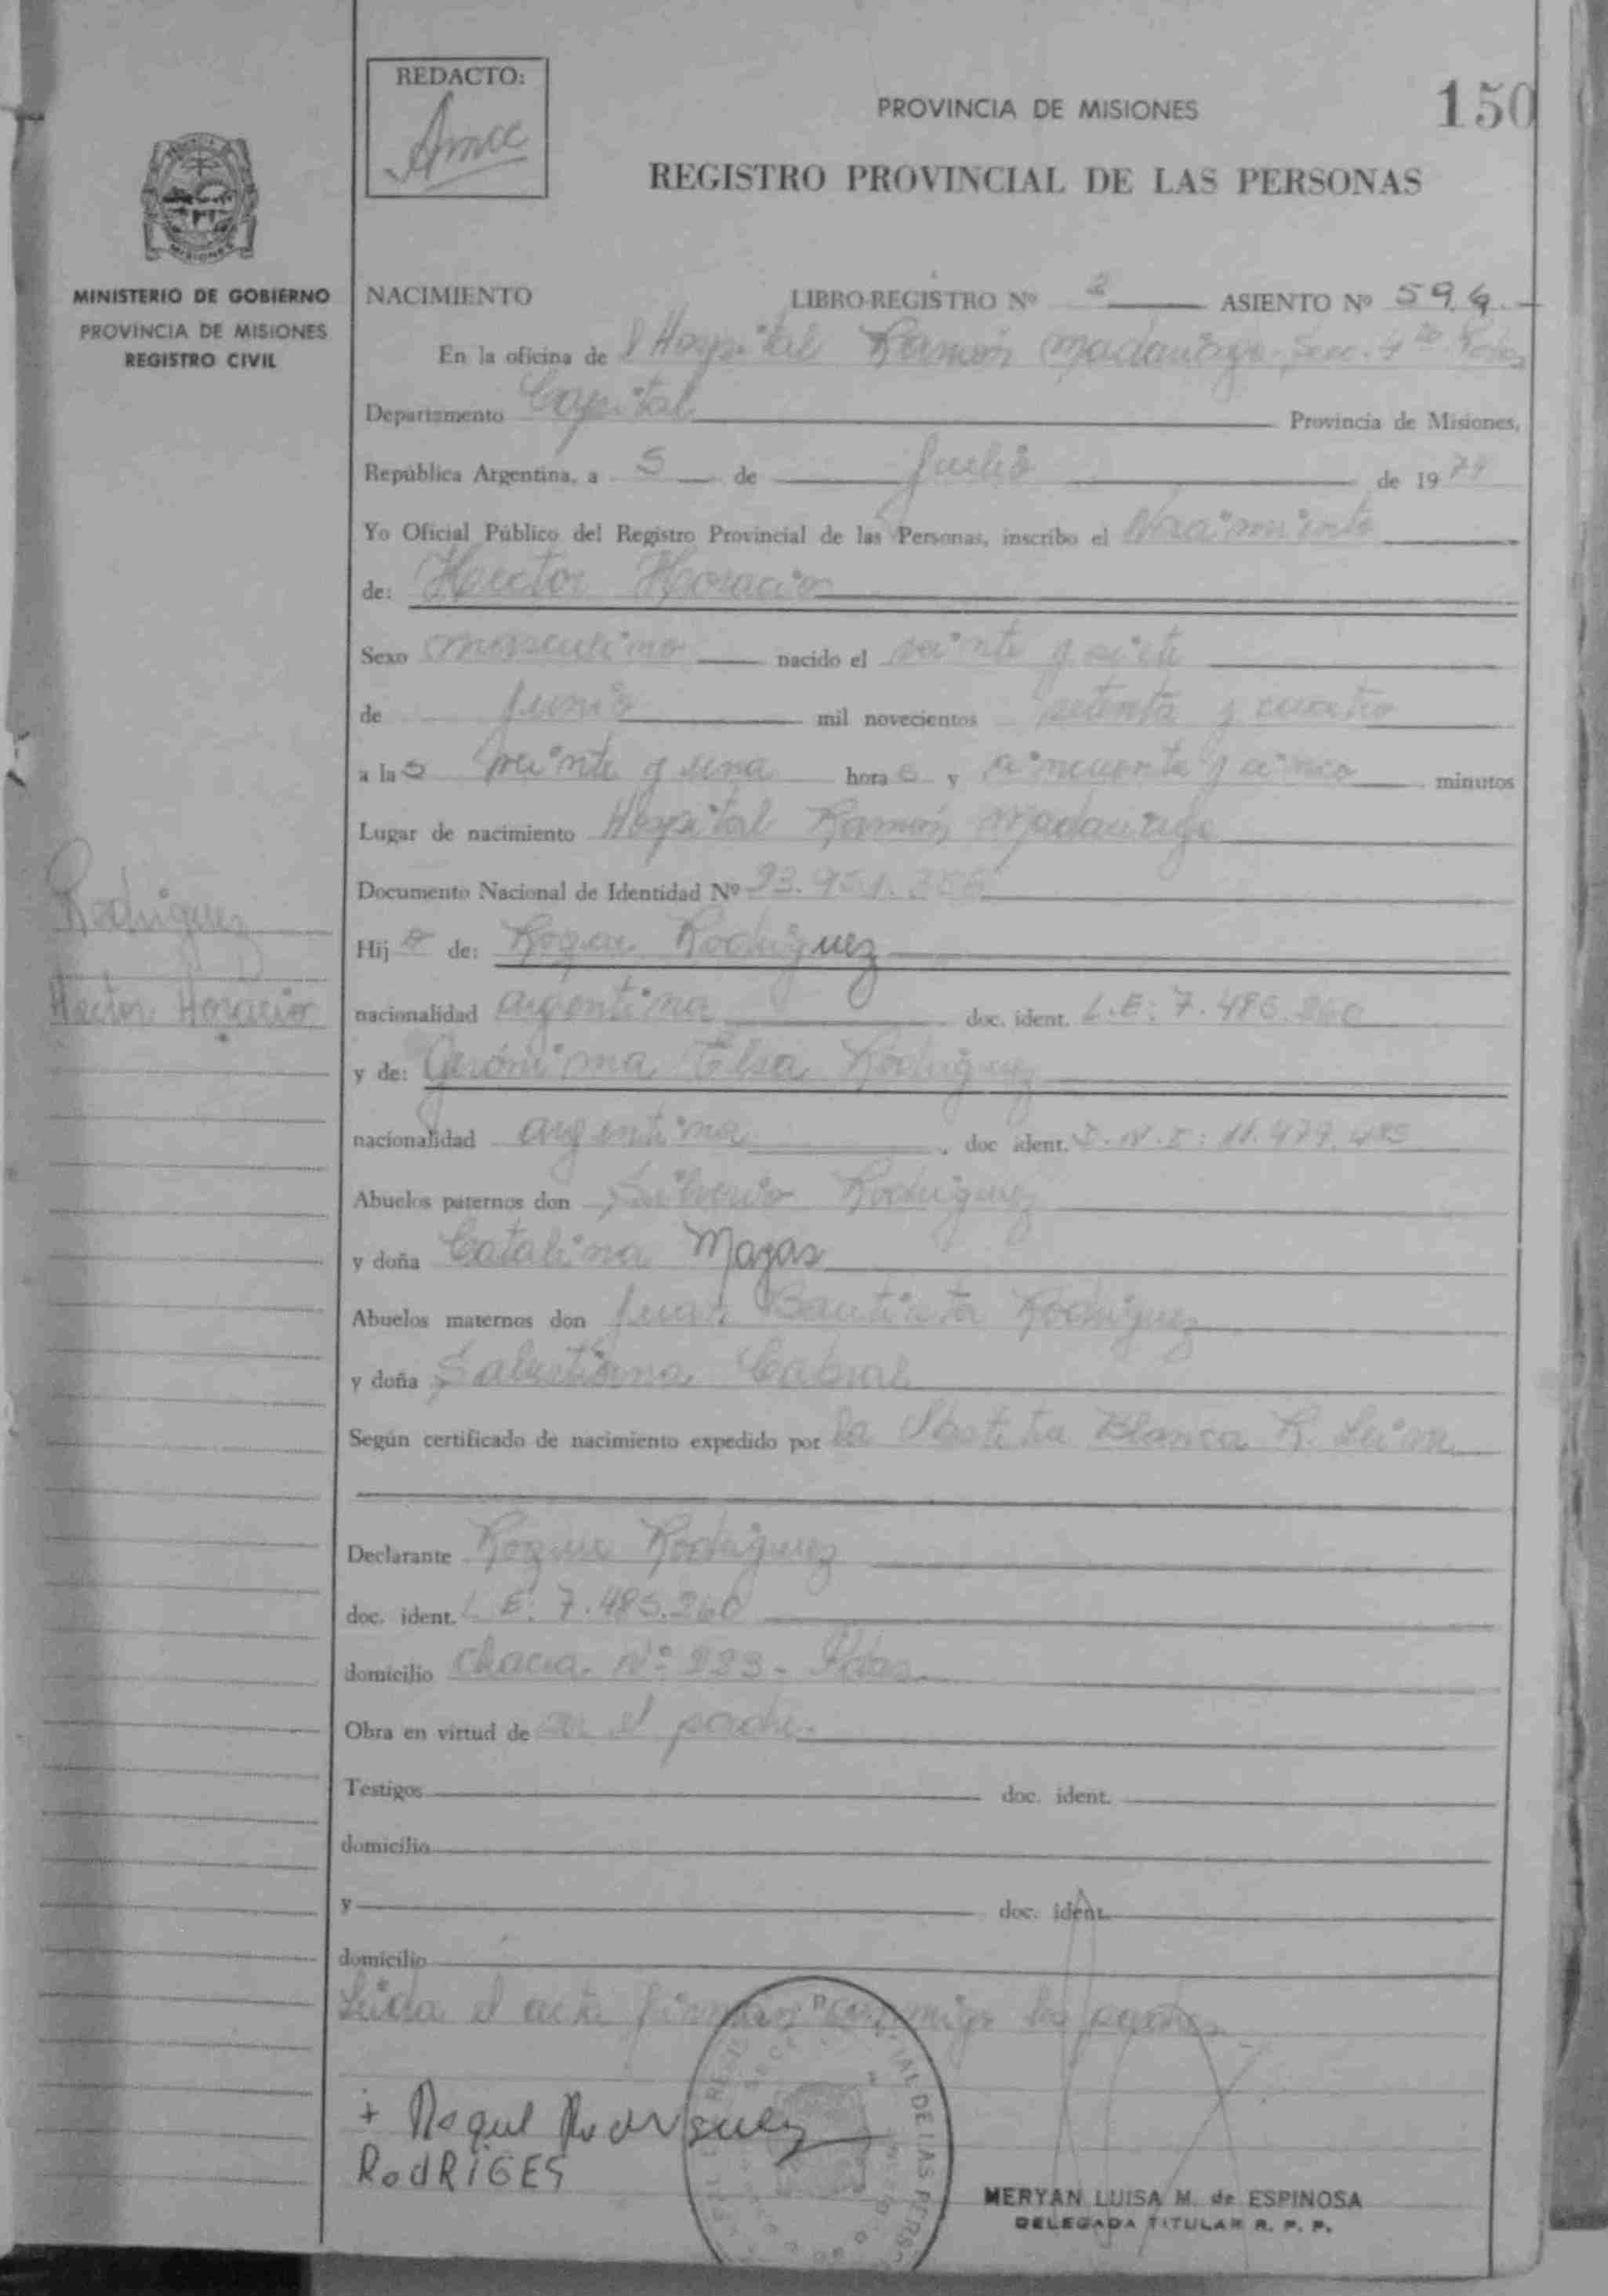 REDACTO:
PROVINCIA DE MISIONES
150
REGISTRO PROVINCIAL DE LAS PERSONAS
MINISTERIO DE GOBIERNO
PROVINCIA DE MISIONES
REGISTRO CIVIL
NACIMIENTO LIBRO-REGISTRO Nº 2 ASIENTO Nº 594
En la oficina de l Hospital Ramón Madariaga Secc. 4ta Pdas
Departamento Capital Provincia de Misiones,
República Argentina, a 5 de Julio de 1974
Yo Oficial Público del Registro Provincial de las Personas, inscribo el Nacimiento
de: Hector Horacio
Sexo masculino nacido el veinte y siete
de Junio mil novecientos setenta y cuatro
a las veinte y una horas y cincuenta y cinco minutos
Lugar de nacimiento Hospital Ramón Madariaga
Documento Nacional de Identidad Nº 23.951.
Rodriguez
Hector Horacio
Hijo de: Roque Rodriguez
nacionalidad argentina doc. ident. L.E: 7.485.260
y de: Gerónima Elsa Rodriguez
nacionalidad argentina, doc ident. D.N.I: 11.479.
Abuelos paternos don Silverio Rodriguez
y doña Catalina
Abuelos maternos don Juan Bautista Rodriguez
y doña Salustiana Cabral
Según certificado de nacimiento expedido por la Obstetra Blanca R.
Declarante Roque Rodriguez
doc. ident. L.E: 7.485.260
domicilio chacra Nº 223 - Pdas
Obra en virtud de ser el padre.
Testigos doc. ident.
domicilio
y doc. ident.
domicilio
Leida el acta firman conmigo los padres
+ Roque Rodriguez
RodRiGES
MERYAN LUISA M. de ESPINOSA
DELEGADA TITULAR R. P. P.